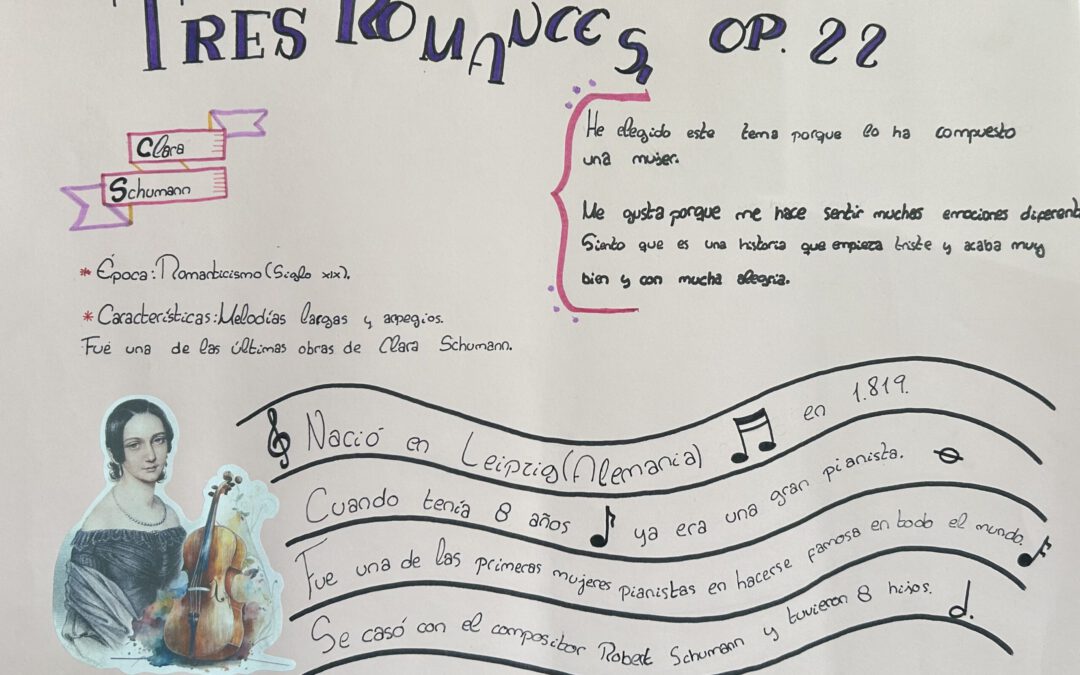 TRES ROMANCES, OP. 22
Clara
Schumann
He elegido este tema porque lo ha compuesto
una mujer.
Me gusta porque me hace sentir muchas emociones diferent
Siento que es una historia que empieza triste y acaba muy
bien y con mucha alegria.
* Época: Romanticismo (Siglo XIX).
* Características: Melodías largas y arpegios.
Fué una de las últimas obras de Clara Schumann.
Nació en Leipzig (Alemania) en 1.819.
Cuando tenía 8 años ya era una gran pianista.
Fue una de las primeras mujeres pianistas en hacerse famosa en todo el mundo.
Se casó con el compositor Robert Schumann y tuvieron 8 hijos.